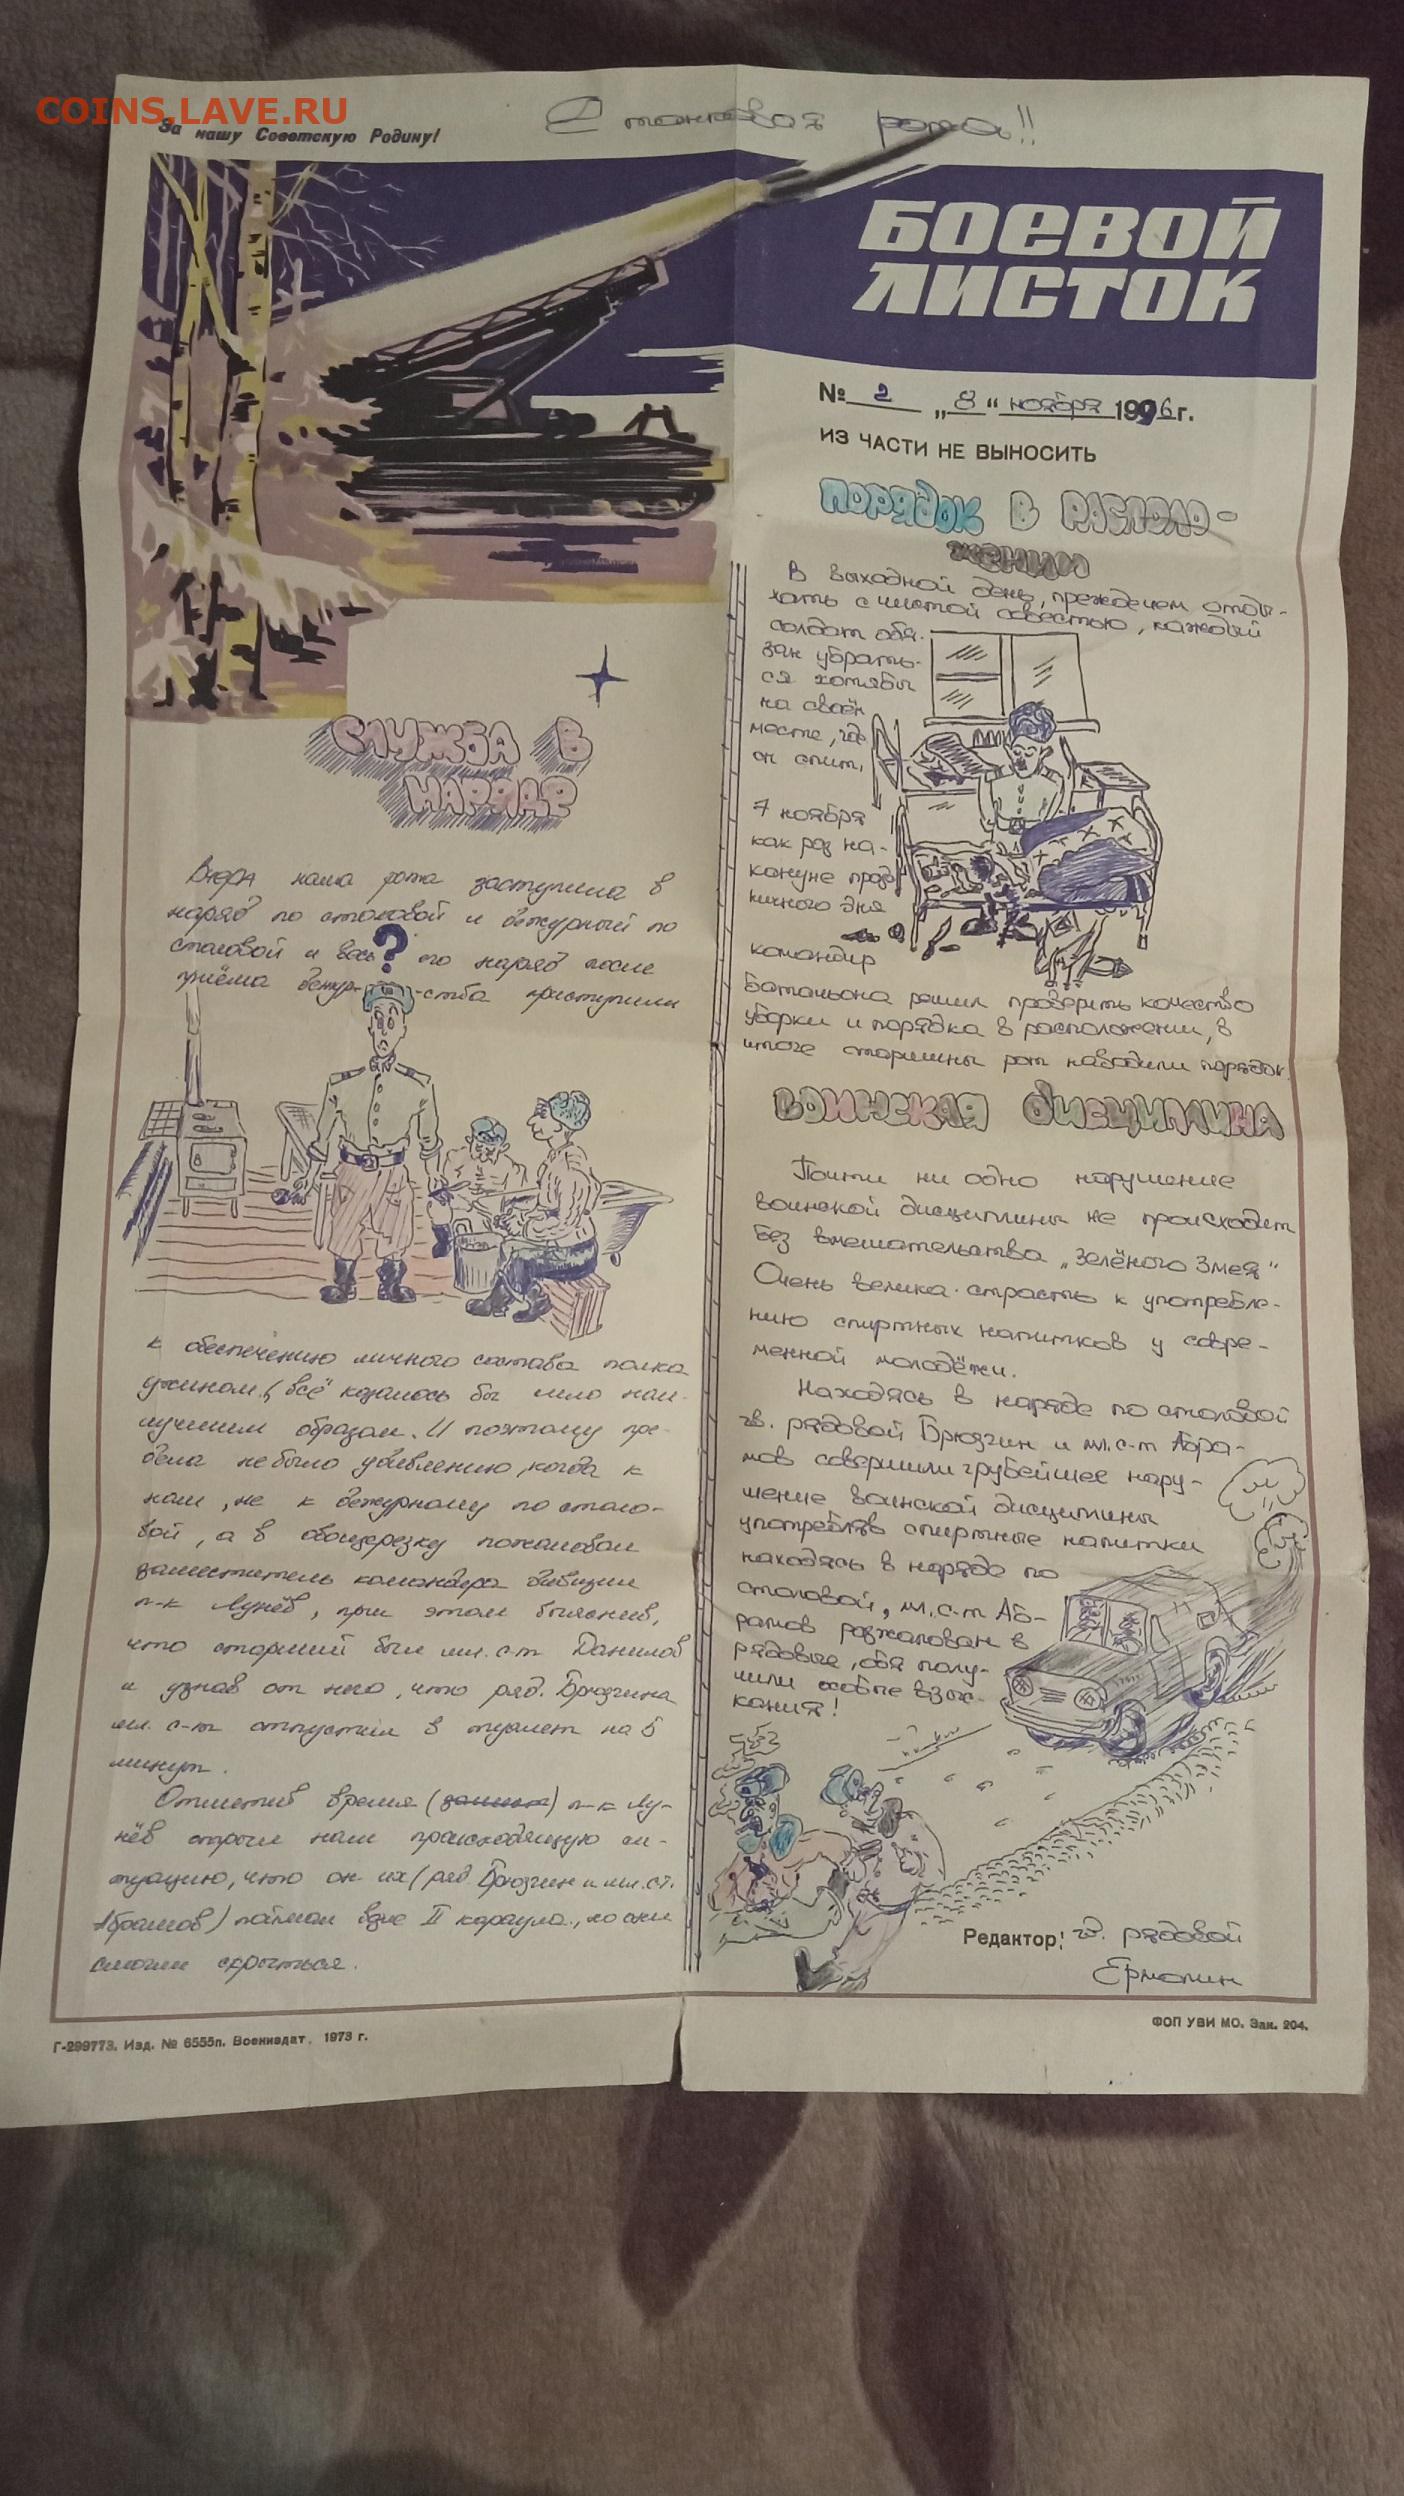 COINS.LAVE.RU
За нашу Советскую Родину!
танковая рота!!
БОЕВОЙ
ЛИСТОК
№ 2 „8“ ноября 1996 г.
ИЗ ЧАСТИ НЕ ВЫНОСИТЬ
СЛУЖБА В
НАРЯДЕ
Вчера наша рота заступила в
наряд по столовой и дежурный по
столовой и весь ? его наряд после
приёма дежур- -ства приступили
к обеспечению личного состава полка
ужином, всё казалось бы шло наи-
лучшим образом. И поэтому пре-
дела не было удивлению, когда к
нам, не к дежурному по столо-
вой, а в овощерезку пожаловал
заместитель командира дивизии
п-к Лунёв, при этом выяснив,
что старший был мл. с-т Данилов
и узнав от него, что ряд. Брюзгина
мл. с-т отпустил в туалет на 5
минут.
Отметив время ( ) п-к Лу-
нёв открыл нам происходящую си-
туацию, что он их (ряд. Брюзгин и мл. ст.
Абрамов) поймал вдле II караула, но они
смогли скрыться.
ПОРЯДОК В РАСПОЛО-
ЖЕНИИ
В выходной день, преждечем отды-
хать с чистой совестью, каждый
солдат обя-
зан убрать-
ся хотябы
на своём
месте, где
он спит,
7 ноября
как раз на-
кануне празд
ничного дня
командир
батальона решил проверить качество
уборки и порядка в расположении, в
итоге старшины рот наводили порядок.
ВОИНСКАЯ ДИСЦИПЛИНА
Почти ни одно нарушение
воинской дисциплины не происходит
без вмешательства „Зелёного Змея“
Очень велика страсть к употребле-
нию спиртных напитков у совре-
менной молодёжи.
Находясь в наряде по столовой
гв. рядовой Брюзгин и мл. с-т Абра-
мов совершили грубейшее нару-
шение воинской дисциплины
употребляв спиртные напитки
находясь в наряде по
столовой, мл. с-т Аб-
рамов разжалован в
рядовые, оба полу-
чили особые взыс-
кания!
Редактор: гв. рядовой
Ермолин
Г-299773. Изд. № 6555п. Воениздат. 1973 г.
ФОП УВИ МО. Зак. 204.